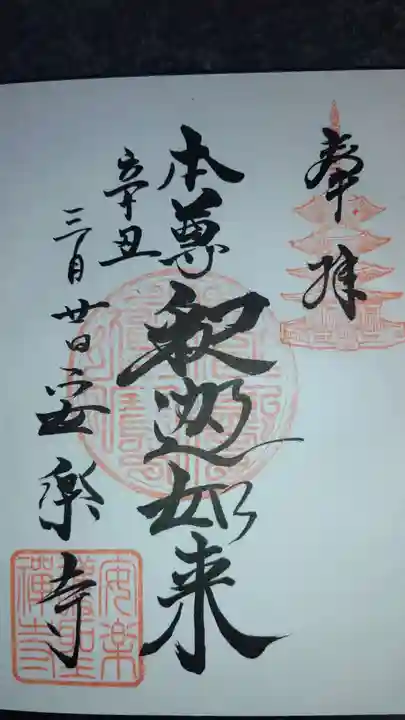 奉拝
本尊
釈迦如来
辛丑
三月廿日
安楽寺
安楽
禅寺